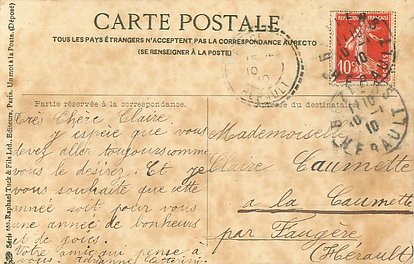 CARTE POSTALE
TOUS LES PAYS ÉTRANGERS N'ACCEPTENT PAS LA CORRESPONDANCE AU RECTO
(SE RENSEIGNER À LA POSTE)
10
HÉRAULT
Partie réservée à la correspondance.
du destinataire.
Série Raphael Tuck & Fils Ltd., Éditeurs, Paris. Un mot à la Poste. (Déposé)
Très Chère Claire
J'y espère que vous
devez aller toujours comme
vous le desirer. Et je
vous souhaite que cette
année soit pour vous
une année de bonheurs
et de goies.
Votre amie qui pense à
vous
Mademoiselle
Claire Caumette
a la Caumette
par Faugère
(Hérault)